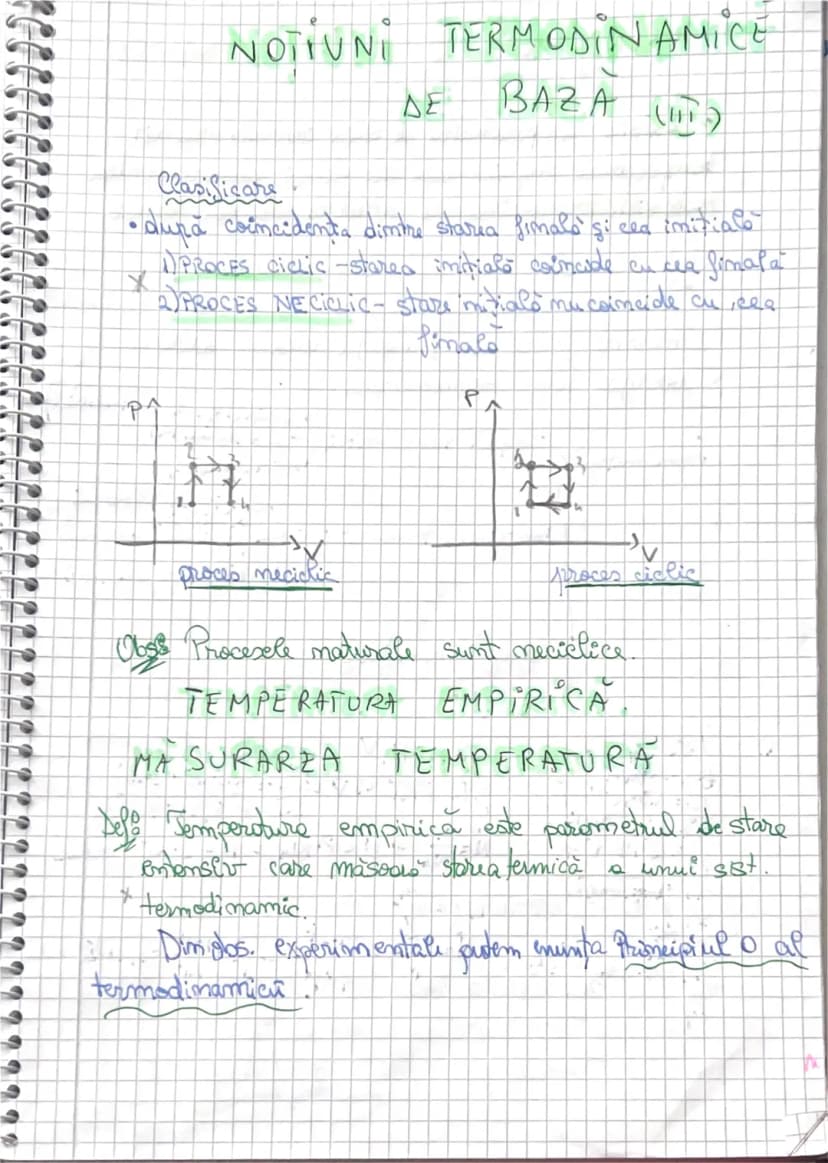 NOȚIUNI TERMODINAMICE
DE BAZĂ (III)
Clasificare
• după coincidența dintre starea finală și cea inițială
1) PROCES CICLIC - starea inițială coincide cu cea finală
x
2) PROCES NECICLIC - stare inițială nu coincide cu cea
finală
P
P
2
3
2
3
1
4
1
4
V
V
proces neciclic
proces ciclic
Obs: Procesele naturale sunt neciclice.
TEMPERATURA EMPIRICĂ.
MĂSURAREA TEMPERATURĂ
Def: Temperatura empirică este parametrul de stare
intensiv care măsoară starea termică a unui sist.
x termodinamic.
Din obs. experimentale putem enunța Principiul 0 al
termodinamicii.